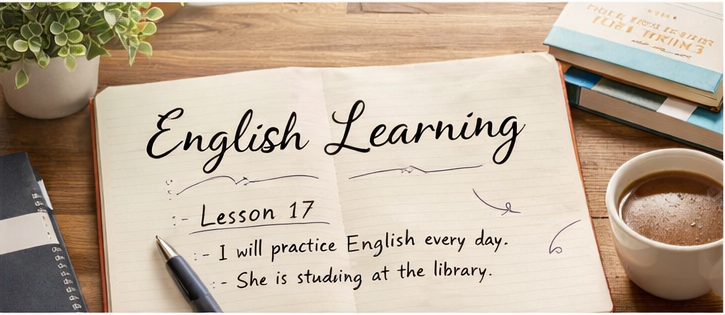 English Learning
:- Lesson 17
:- I will practice English every day.
:- She is studing at the library.